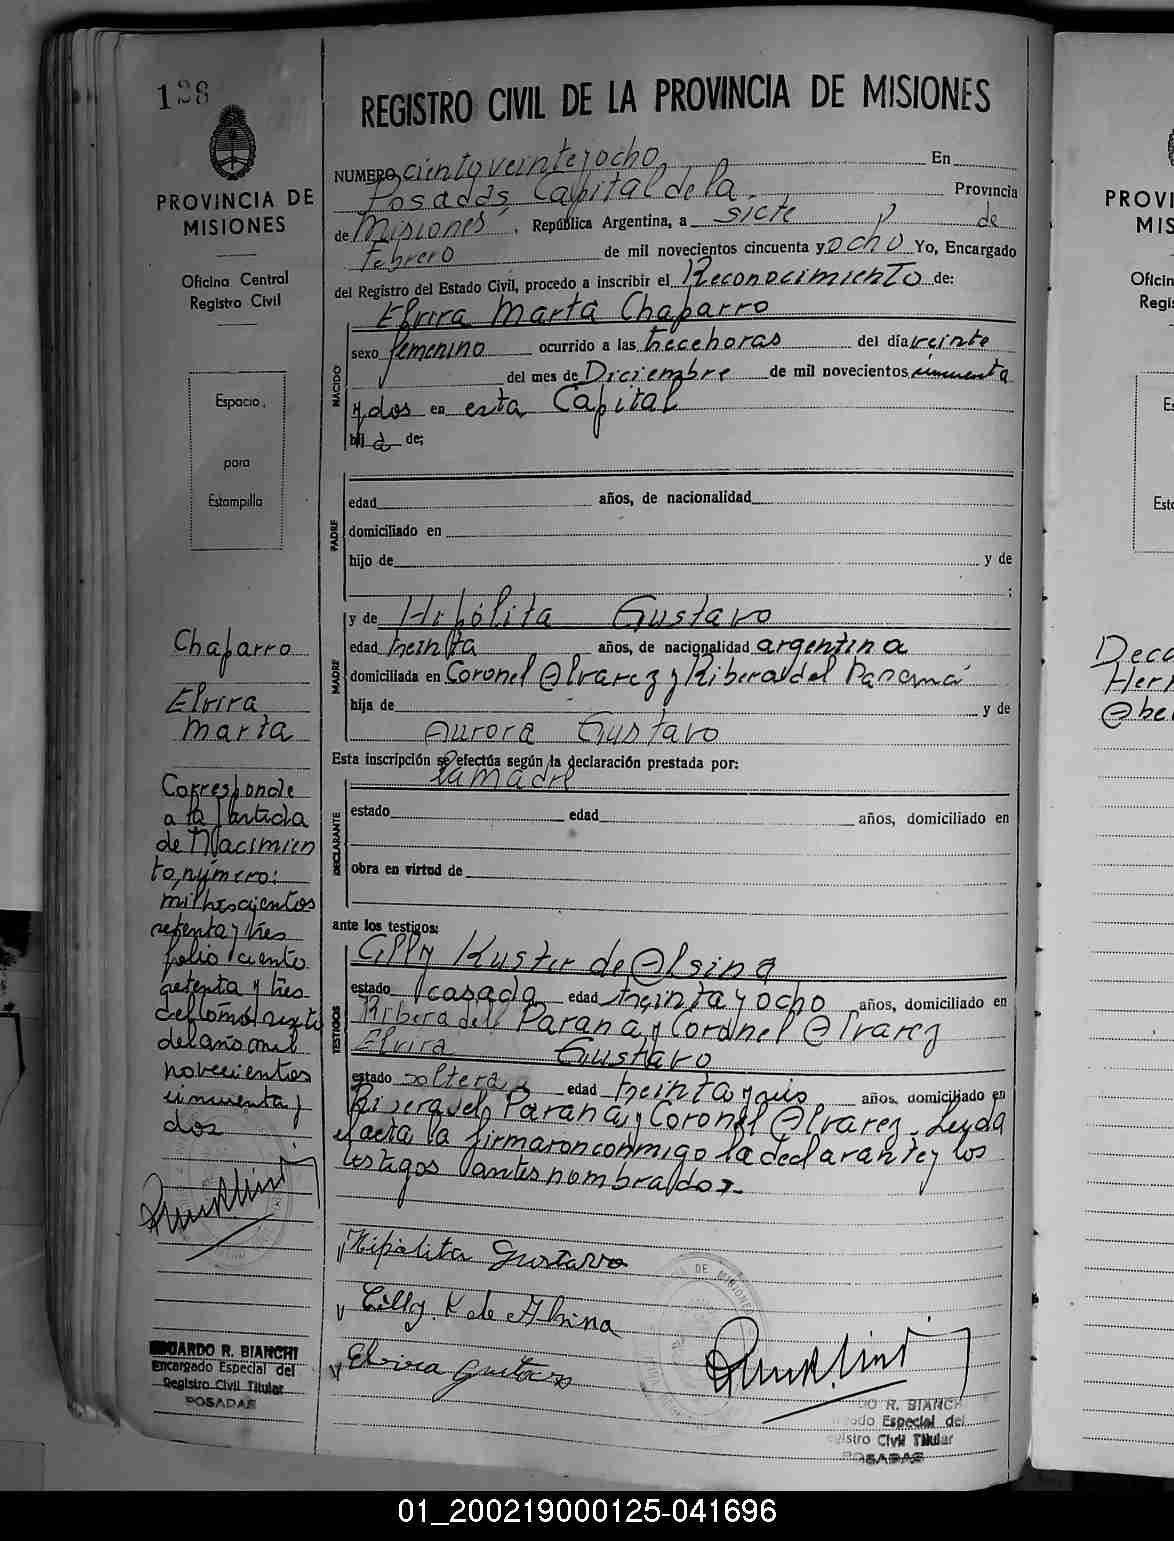 128
PROVINCIA DE
MISIONES
Oficina Central
Registro Civil
Espacio
para
Estampilla
Chaparro
Elvira
Marta
Corresponde
a la Partida
de Nacimien
to, número:
mil trescientos
setenta y tres
folio ciento
setenta y tres
del tomo sexto
del año mil
novecientos
cincuenta y
dos
EDUARDO R. BIANCHI
Encargado Especial del
Registro Civil Titular
POSADAS
REGISTRO CIVIL DE LA PROVINCIA DE MISIONES
NUMERO ciento veinte y ocho En
Posadas Capital de la Provincia
de Misiones, República Argentina, a siete de
Febrero de mil novecientos cincuenta y ocho Yo, Encargado
del Registro del Estado Civil, procedo a inscribir el Reconocimiento de:
Elvira Marta Chaparro
NACIDO
sexo femenino ocurrido a las trece horas del día veinte
del mes de Diciembre de mil novecientos cincuenta
y dos en esta Capital
hij a de:
PADRE
edad años, de nacionalidad
domiciliado en
hijo de y de
;
MADRE
y de Hipólita Gustavo
edad treinta años, de nacionalidad argentina
domiciliada en Coronel Alvarez y Ribera del Paraná
hija de y de
Aurora Gustavo
Esta inscripción se efectúa según la declaración prestada por:
la madre
DECLARANTE
estado edad años, domiciliado en
obra en virtud de
ante los testigos:
TESTIGOS
Cilly Kuster de Alsina
estado casada edad treinta y ocho años, domiciliado en
Ribera del Paraná y Coronel Alvarez
Elvira Gustavo
estado soltera edad treinta y seis años, domiciliado en
Ribera del Paraná y Coronel Alvarez. Leyda
el acta la firmaron conmigo la declarante y los
testigos antes nombrados.-
Hipolita Gustavo
Cilly K de Alsina
Elvira Gustavo
DO R. BIANCHI
Especial del
Registro Civil Titular
POSADAS
PROVI
MIS
Oficin
Regis
Es
Esta
Deca
Her
01_200219000125-041696